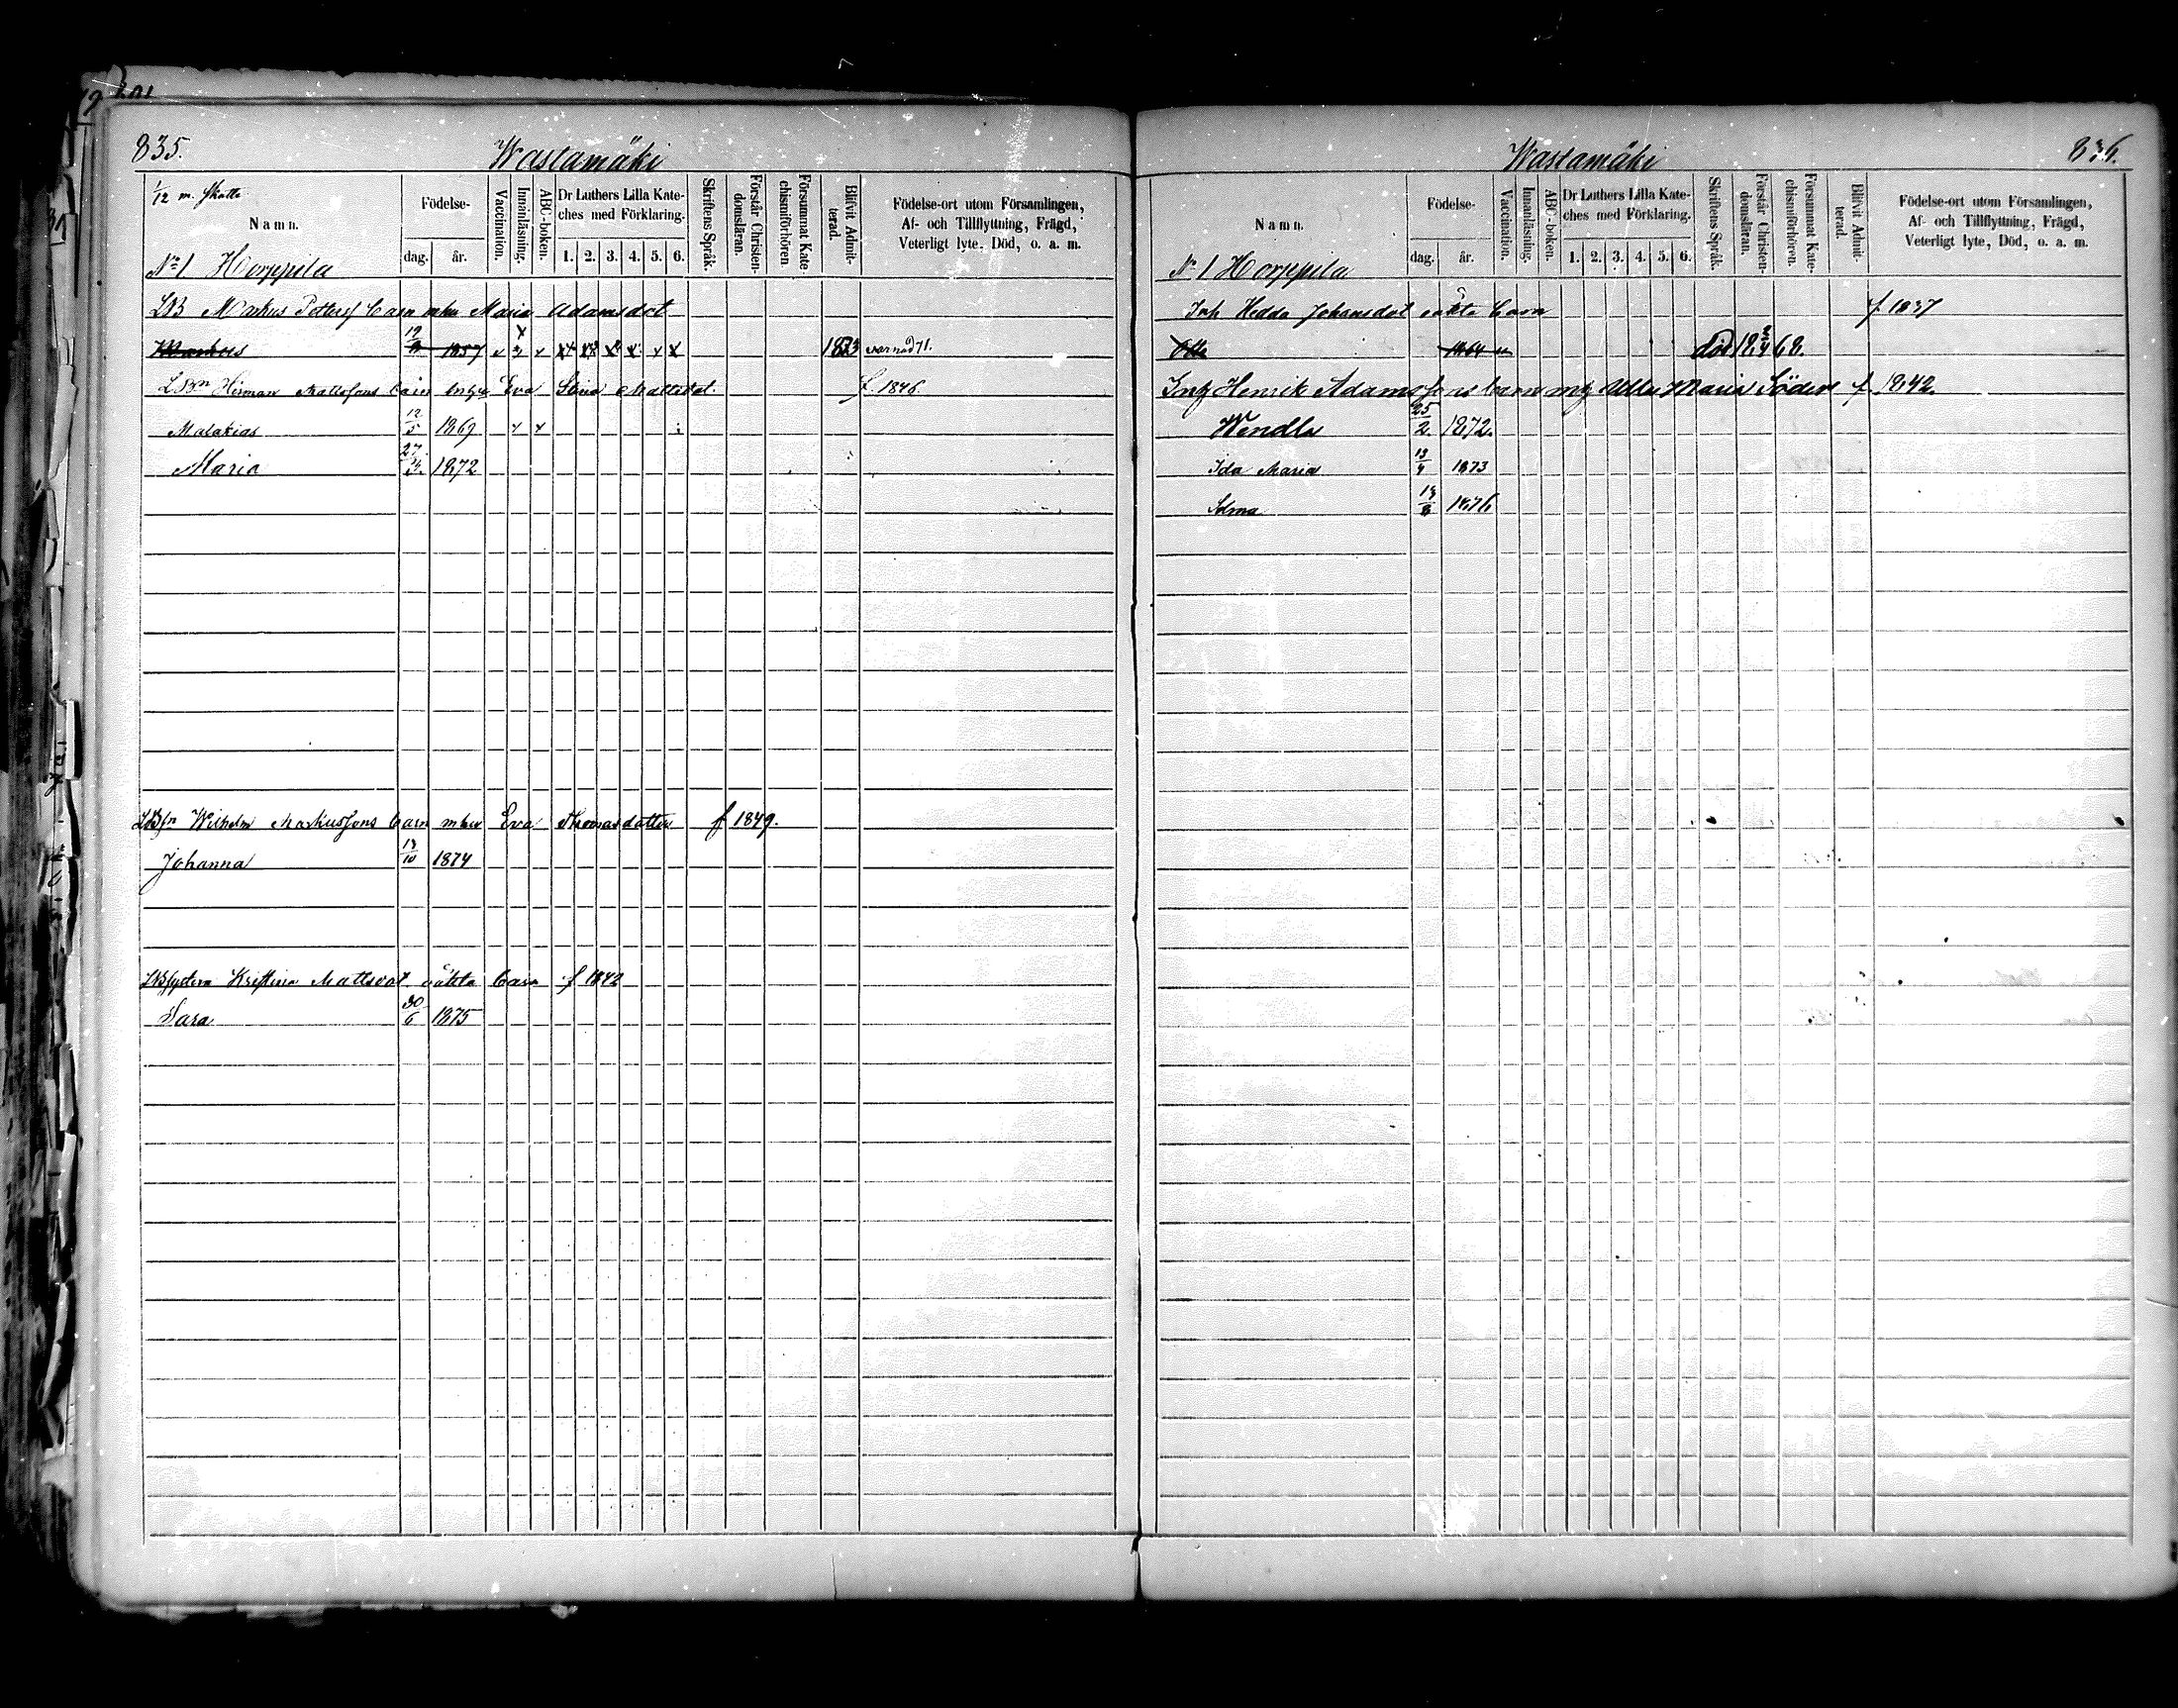 835.
Wastamäki
1/12 m. Skatte
Namn.
Födelse-
dag.
år.
Vaccination.
Innanläsning.
ABC-boken.
Dr Luthers Lilla Kate-
ches med Förklaring.
1. 2. 3. 4. 5. 6.
Skriftens Språk.
Förstår Christen-
domsläran.
Försummat Kate-
chismiförhören
Blifvit Admit-
terad.
Födelse-ort utom Församlingen,
Af- och Tillflyttning, Frägd,
Veterligt lyte, Död, o. a. m.
No 1 Horppila
LB Markus Petterss barn mhu Maria Adamsdot
Markus 1857 1873
LBn Herman Mattssons barn mhu Eva Stina Mattsdot. f. 1846.
Malakias 12/5 1869
Maria 1872
LBsn Wilhelm Markussons barn mhu Eva Thomasdotter f 1849.
Johanna 18/10 1874
LBsystern Kristina Mattsdot oäkta barn f 1842
Sara 30/6 1875
Wastamäki
836.
Namn.
Födelse-
dag.
år.
Vaccination.
Innanläsning.
ABC-boken.
Dr Luthers Lilla Kate-
ches med Förklaring.
1. 2. 3. 4. 5. 6.
Skriftens Språk.
Förstår Christen-
domsläran.
Försummat Kate-
chismiförhören.
Blifvit Admit-
terad.
Födelse-ort utom Församlingen,
Af- och Tillflyttning, Frägd,
Veterligt lyte, Död, o. a. m.
No 1 Horppila
Inh Hedda Johansdot oäkta barn f. 1837
Otto 1864 död 18 68.
Inh Henrik Adamssons barn mh Ulla Maria Söder f. 1842.
Wendla 25/2. 1872.
Ida Maria 13/4 1873
Selma 18/8 1876